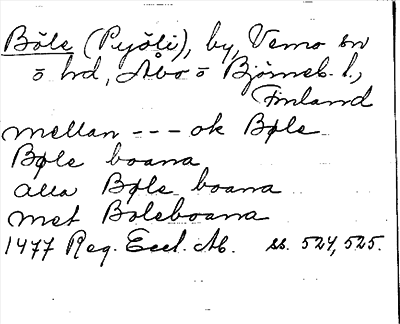 Böle (Pyöli), by, Vemo sn
o hd, Åbo o Björneb. l.,
Finland
mellan --- ok Bøle
Bøle boana
alla Bøle boana
met Boleboana
1477 Reg. Eccl. Ab. ss. 524, 525.